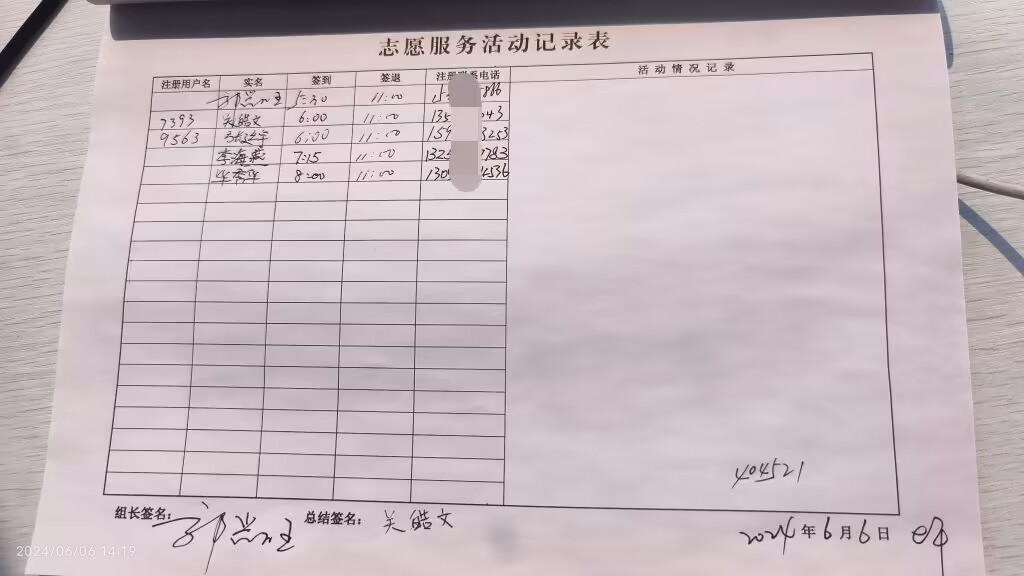 志愿服务活动记录表
注册用户名 实名 签到 签退 注册 系电话 活动情况记录
5:30 11:00 866
7393 关皓文 6:00 11:00 135 043
9563 6:00 11:00 159 3253
李海燕 7:15 11:00 132 1783
毕秀华 8:00 11:00 130 4536
404521
组长签名: 总结签名: 关皓文
2024年6月6日
2024/06/06 14:19